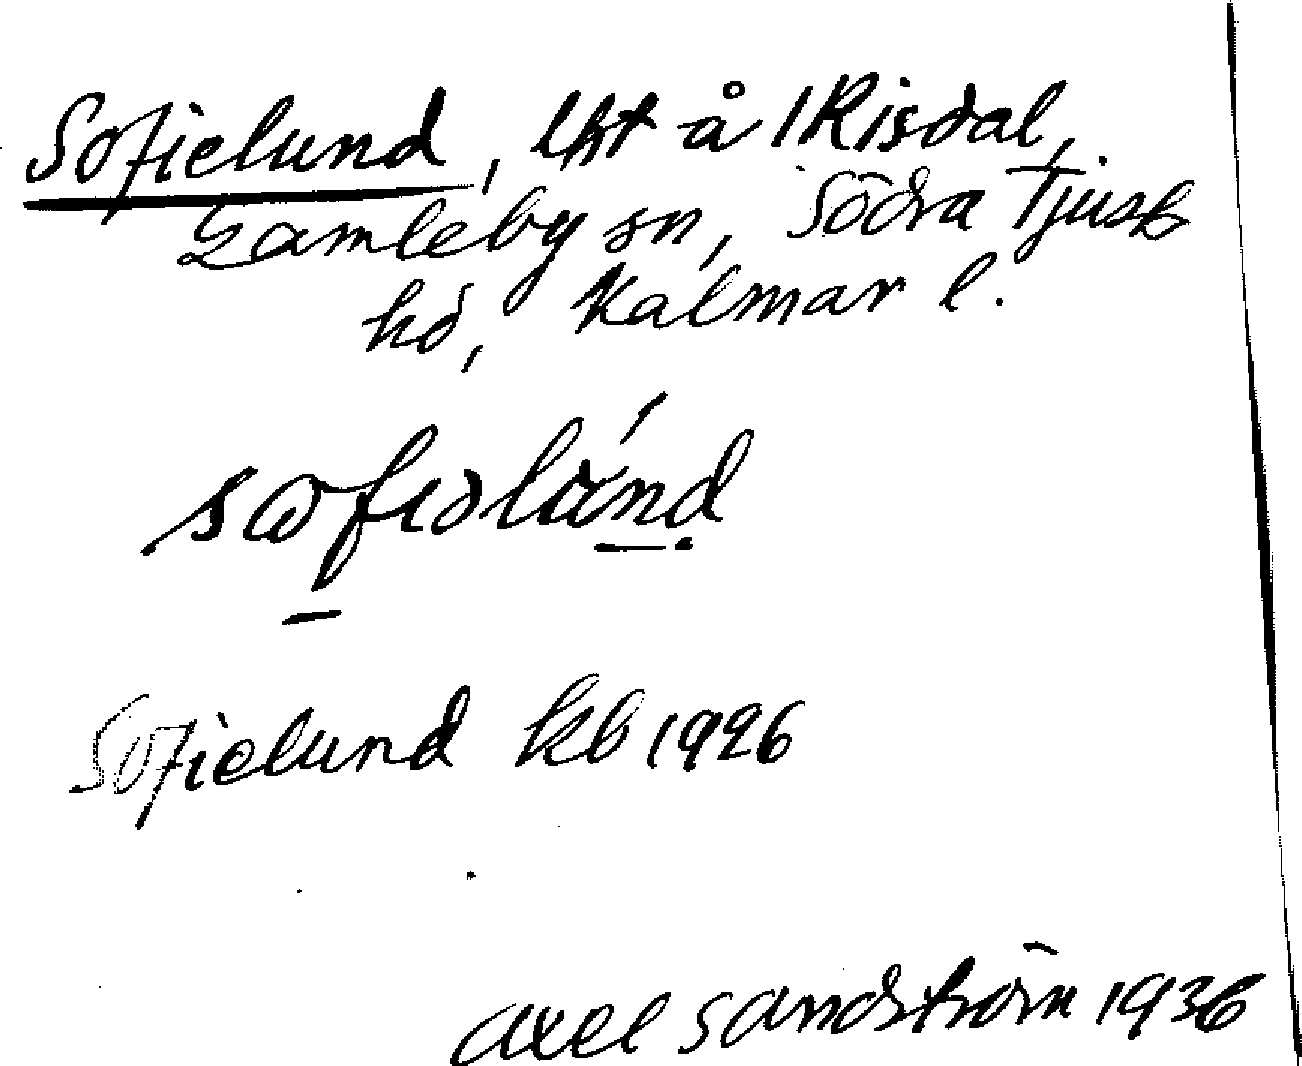 Sofielund, lht å 1 Risdal,
Gamleby sn, Södra Tjust
hd, Kalmar l.
Sofielund kb 1926
Axel Sandström 1936